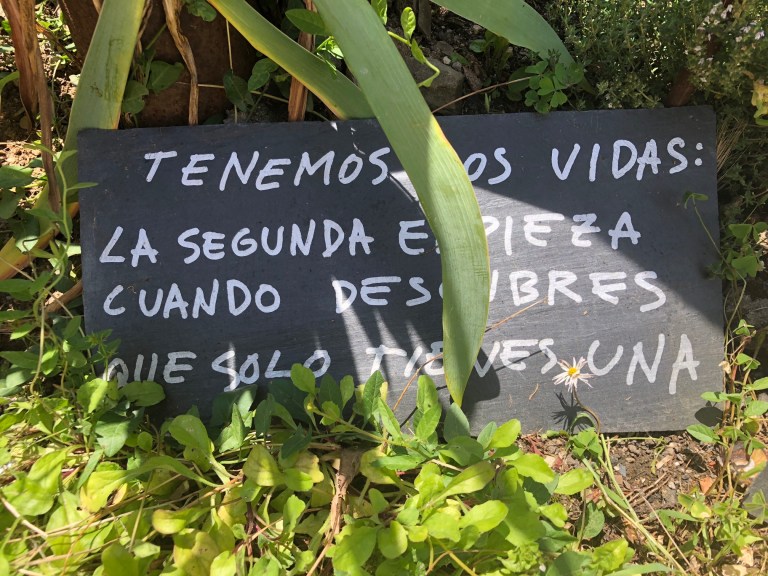 TENEMOS DOS VIDAS:
LA SEGUNDA EMPIEZA
CUANDO DESCUBRES
QUE SOLO TIENES UNA